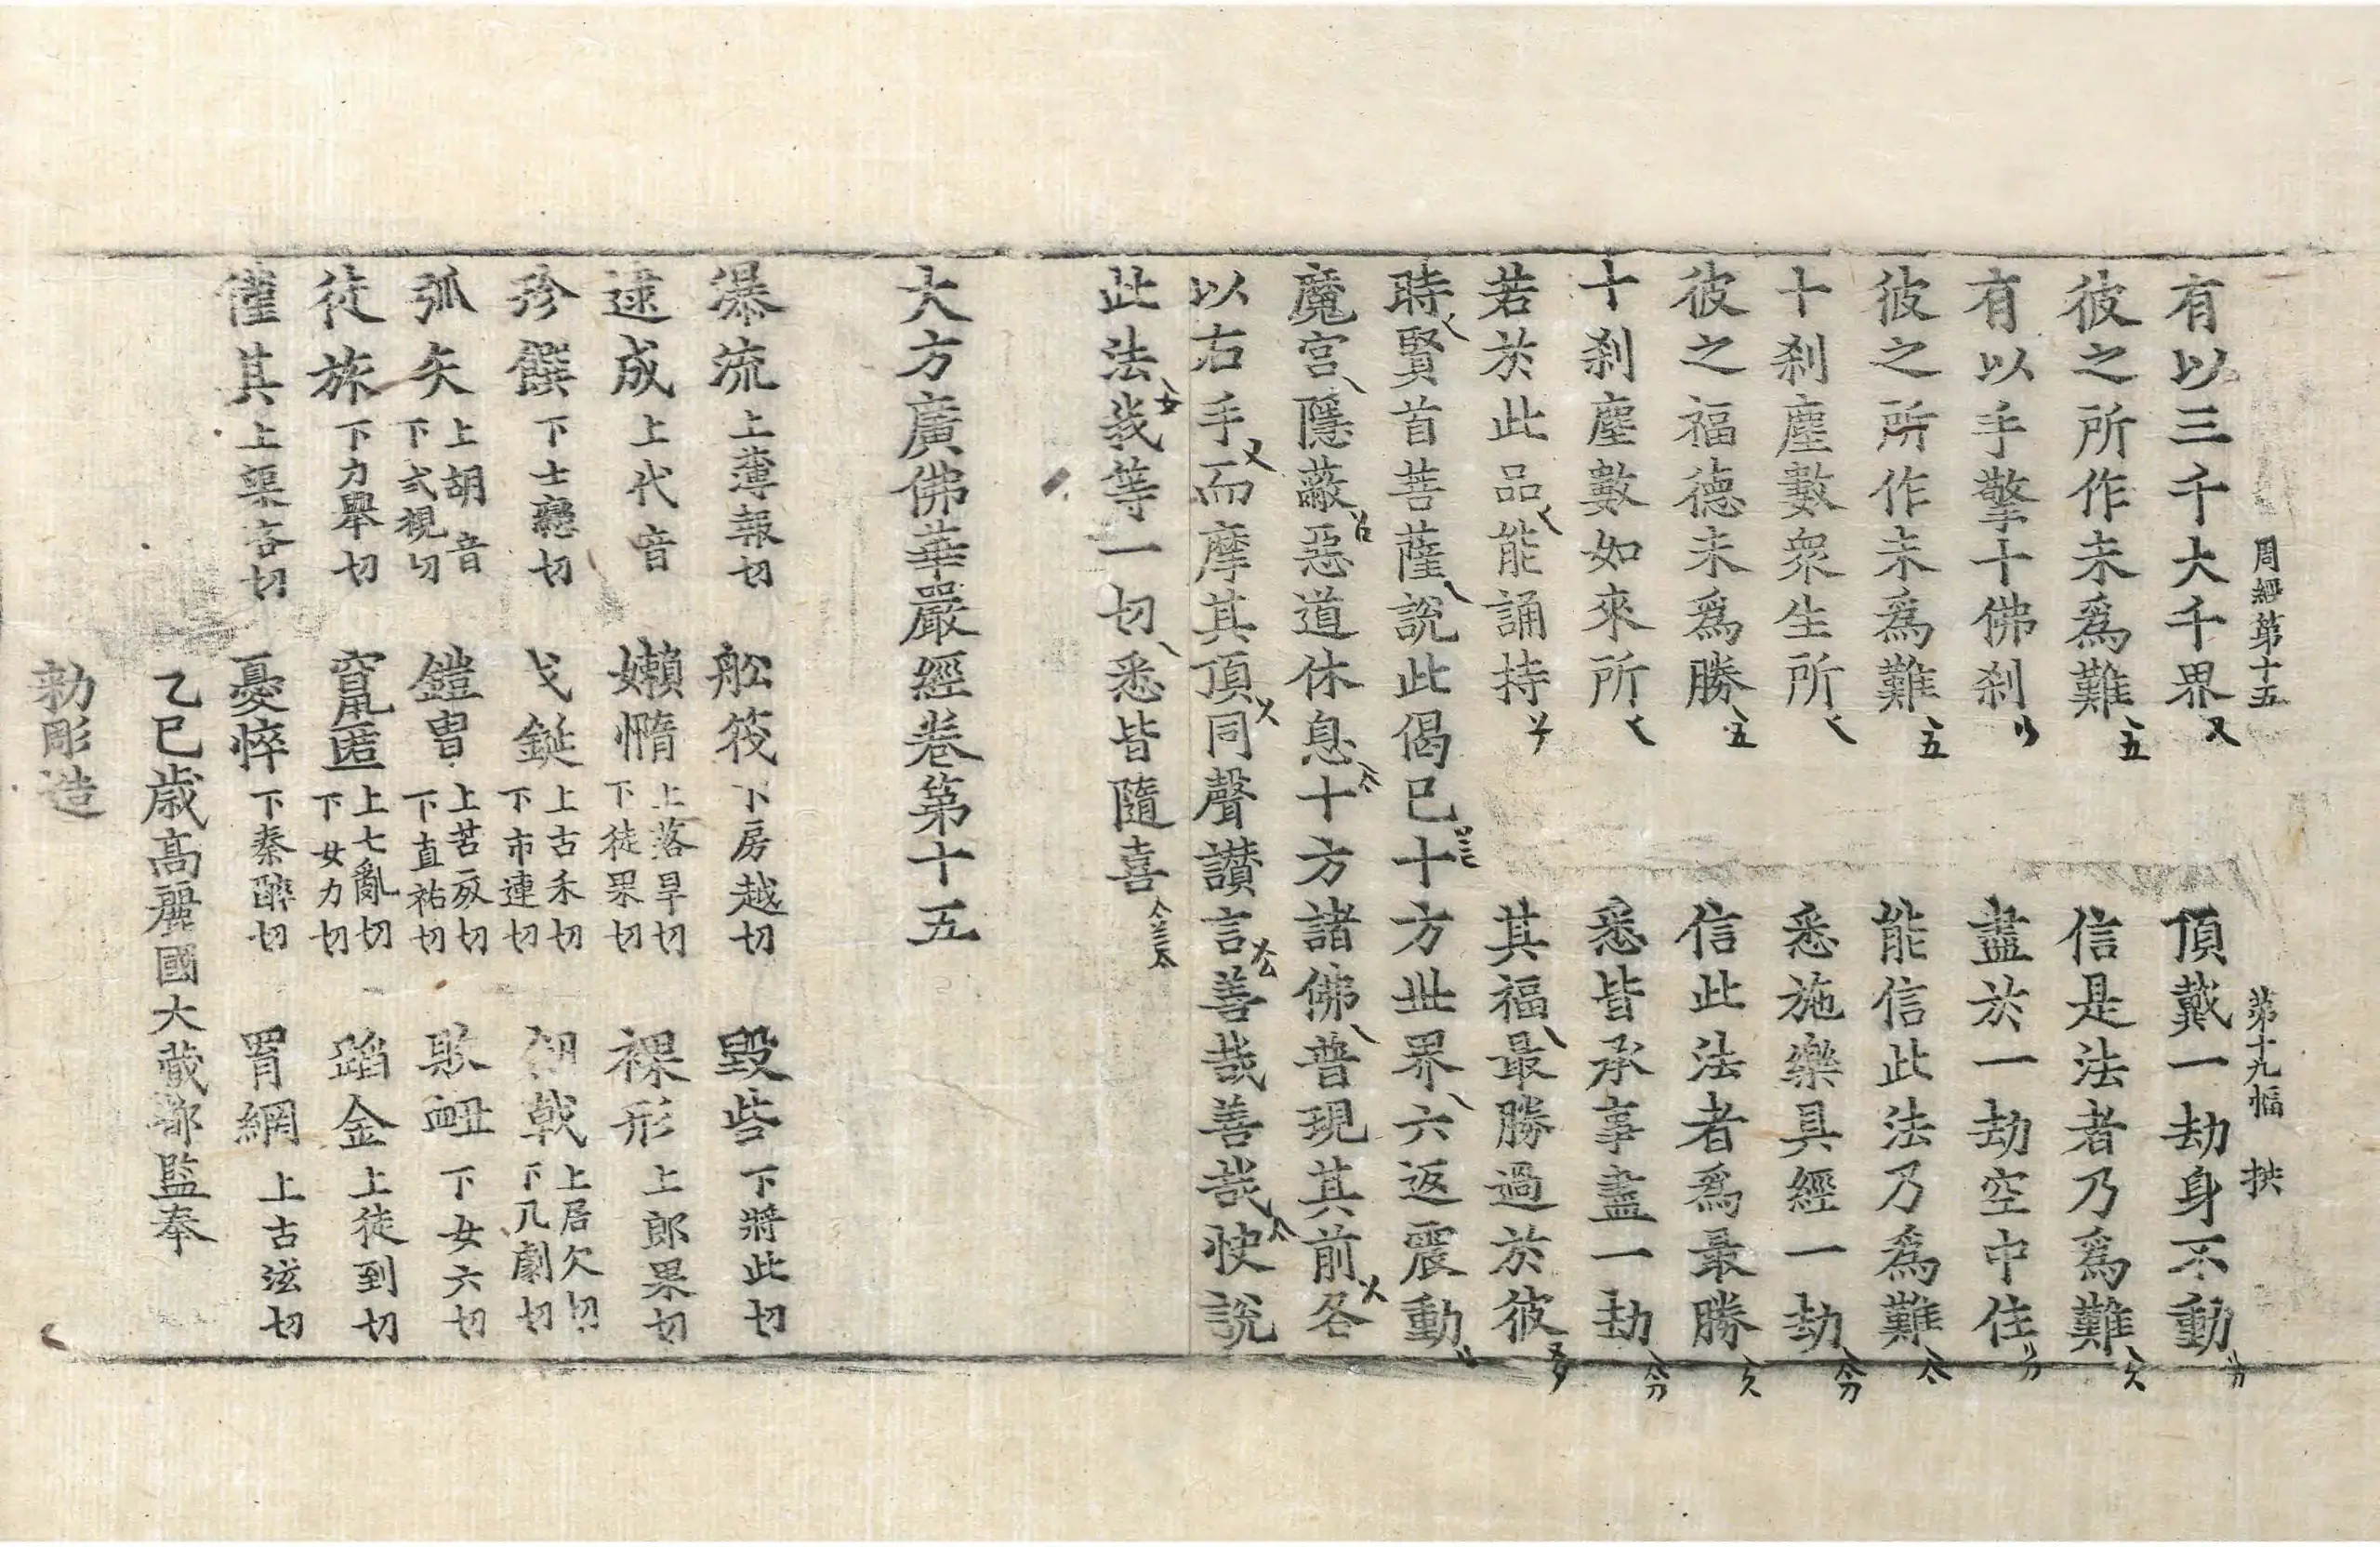 周經第十五 第十九幅 拱
有以三千大千界 頂戴一劫身不動
彼之所作未爲難 信是法者乃爲難
有以手擎十佛刹 盡於一劫空中住
彼之所作未爲難 能信此法乃爲難
十刹塵數衆生所 悉施樂具經一劫
彼之福德未爲勝 信此法者爲最勝
十刹塵數如來所 悉皆承事盡一劫
若於此品能誦持 其福最勝過於彼
時賢首菩薩說此偈已十方世界六返震動
魔宮隱蔽惡道休息十方諸佛普現其前各
以右手而摩其頂同聲讃言善哉善哉快說
此法我等一切悉皆隨喜
大方廣佛華嚴經卷第十五
瀑流上薄報切 舩筏下房越切 毀呰下將此切
逮成上代音 嬾惰上落旱切下徒果切 裸形上郎果切
珍饌下士戀切 戈鋋上古禾切下市連切 戟上居欠切下几劇切
弧矢上胡音下式視切 鎧冑上苦亥切下直祐切 衄下女六切
徒旅下力舉切 竄匿上七亂切下女力切 蹈金上徒到切
僅其上渠吝切 憂悴下秦醉切 罥網上古泫切
乙巳歲高麗國大藏都監奉
勑彫造